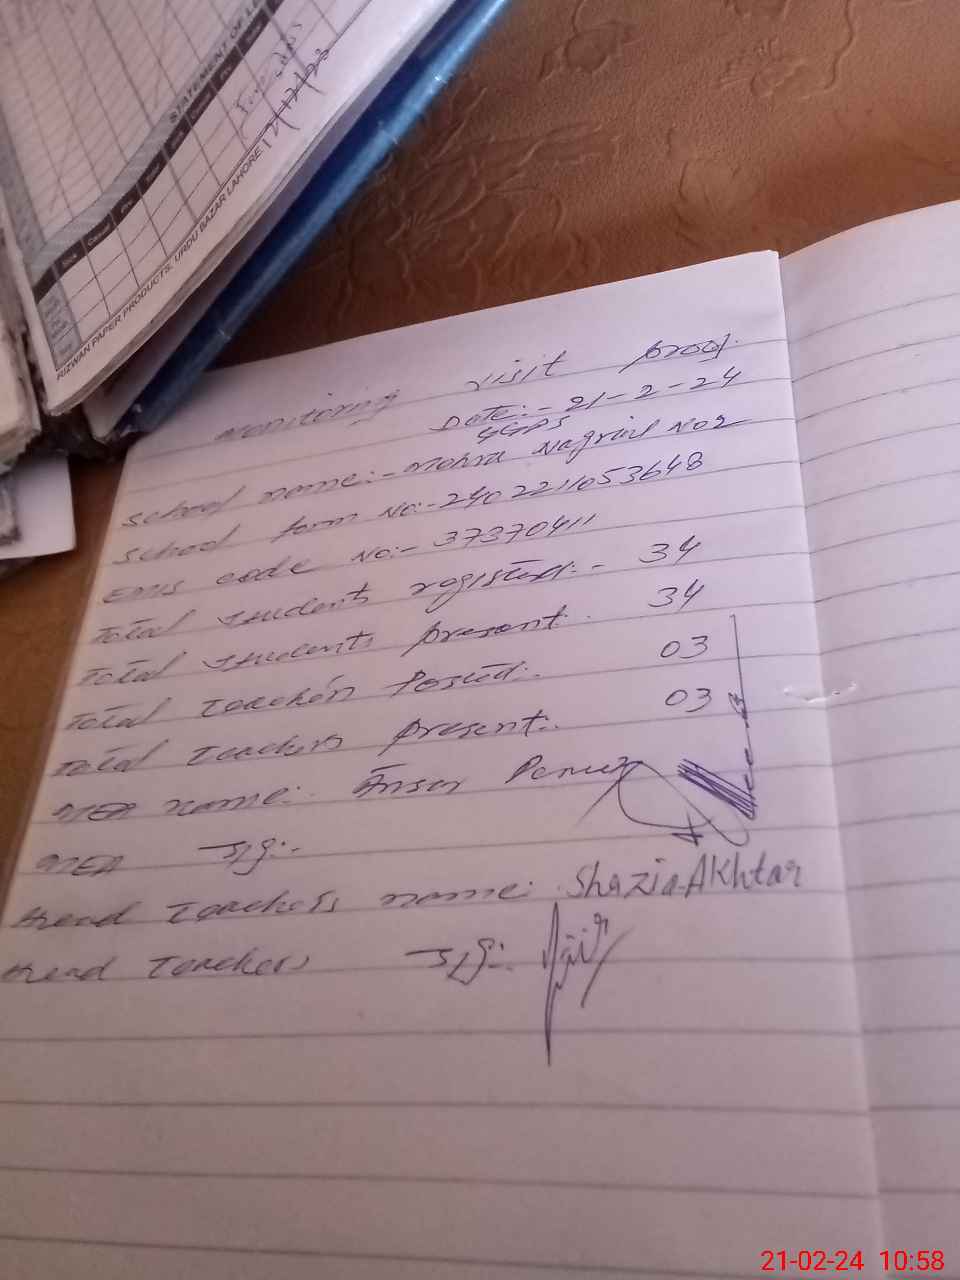 STATEMENT OF
Sick
Casual
RIZWAN PAPER PRODUCTS, URDU BAZAR LAHORE.
Monitoring visit proof.
Date:- 21-2-24
GGPS
School name:- Mohra Nagrial No2
School form No:- 24022211053648
EMIS code No:- 37370411
Total students registerd:- 34
Total students present. 34
Total Teachers Posted:. 03
Total Teachers present:. 03
MEA name:. Ansar
MEA sig:-
Head Teachers name: Shazia Akhtar
Head Teachers sig:.
21-02-24 10:58